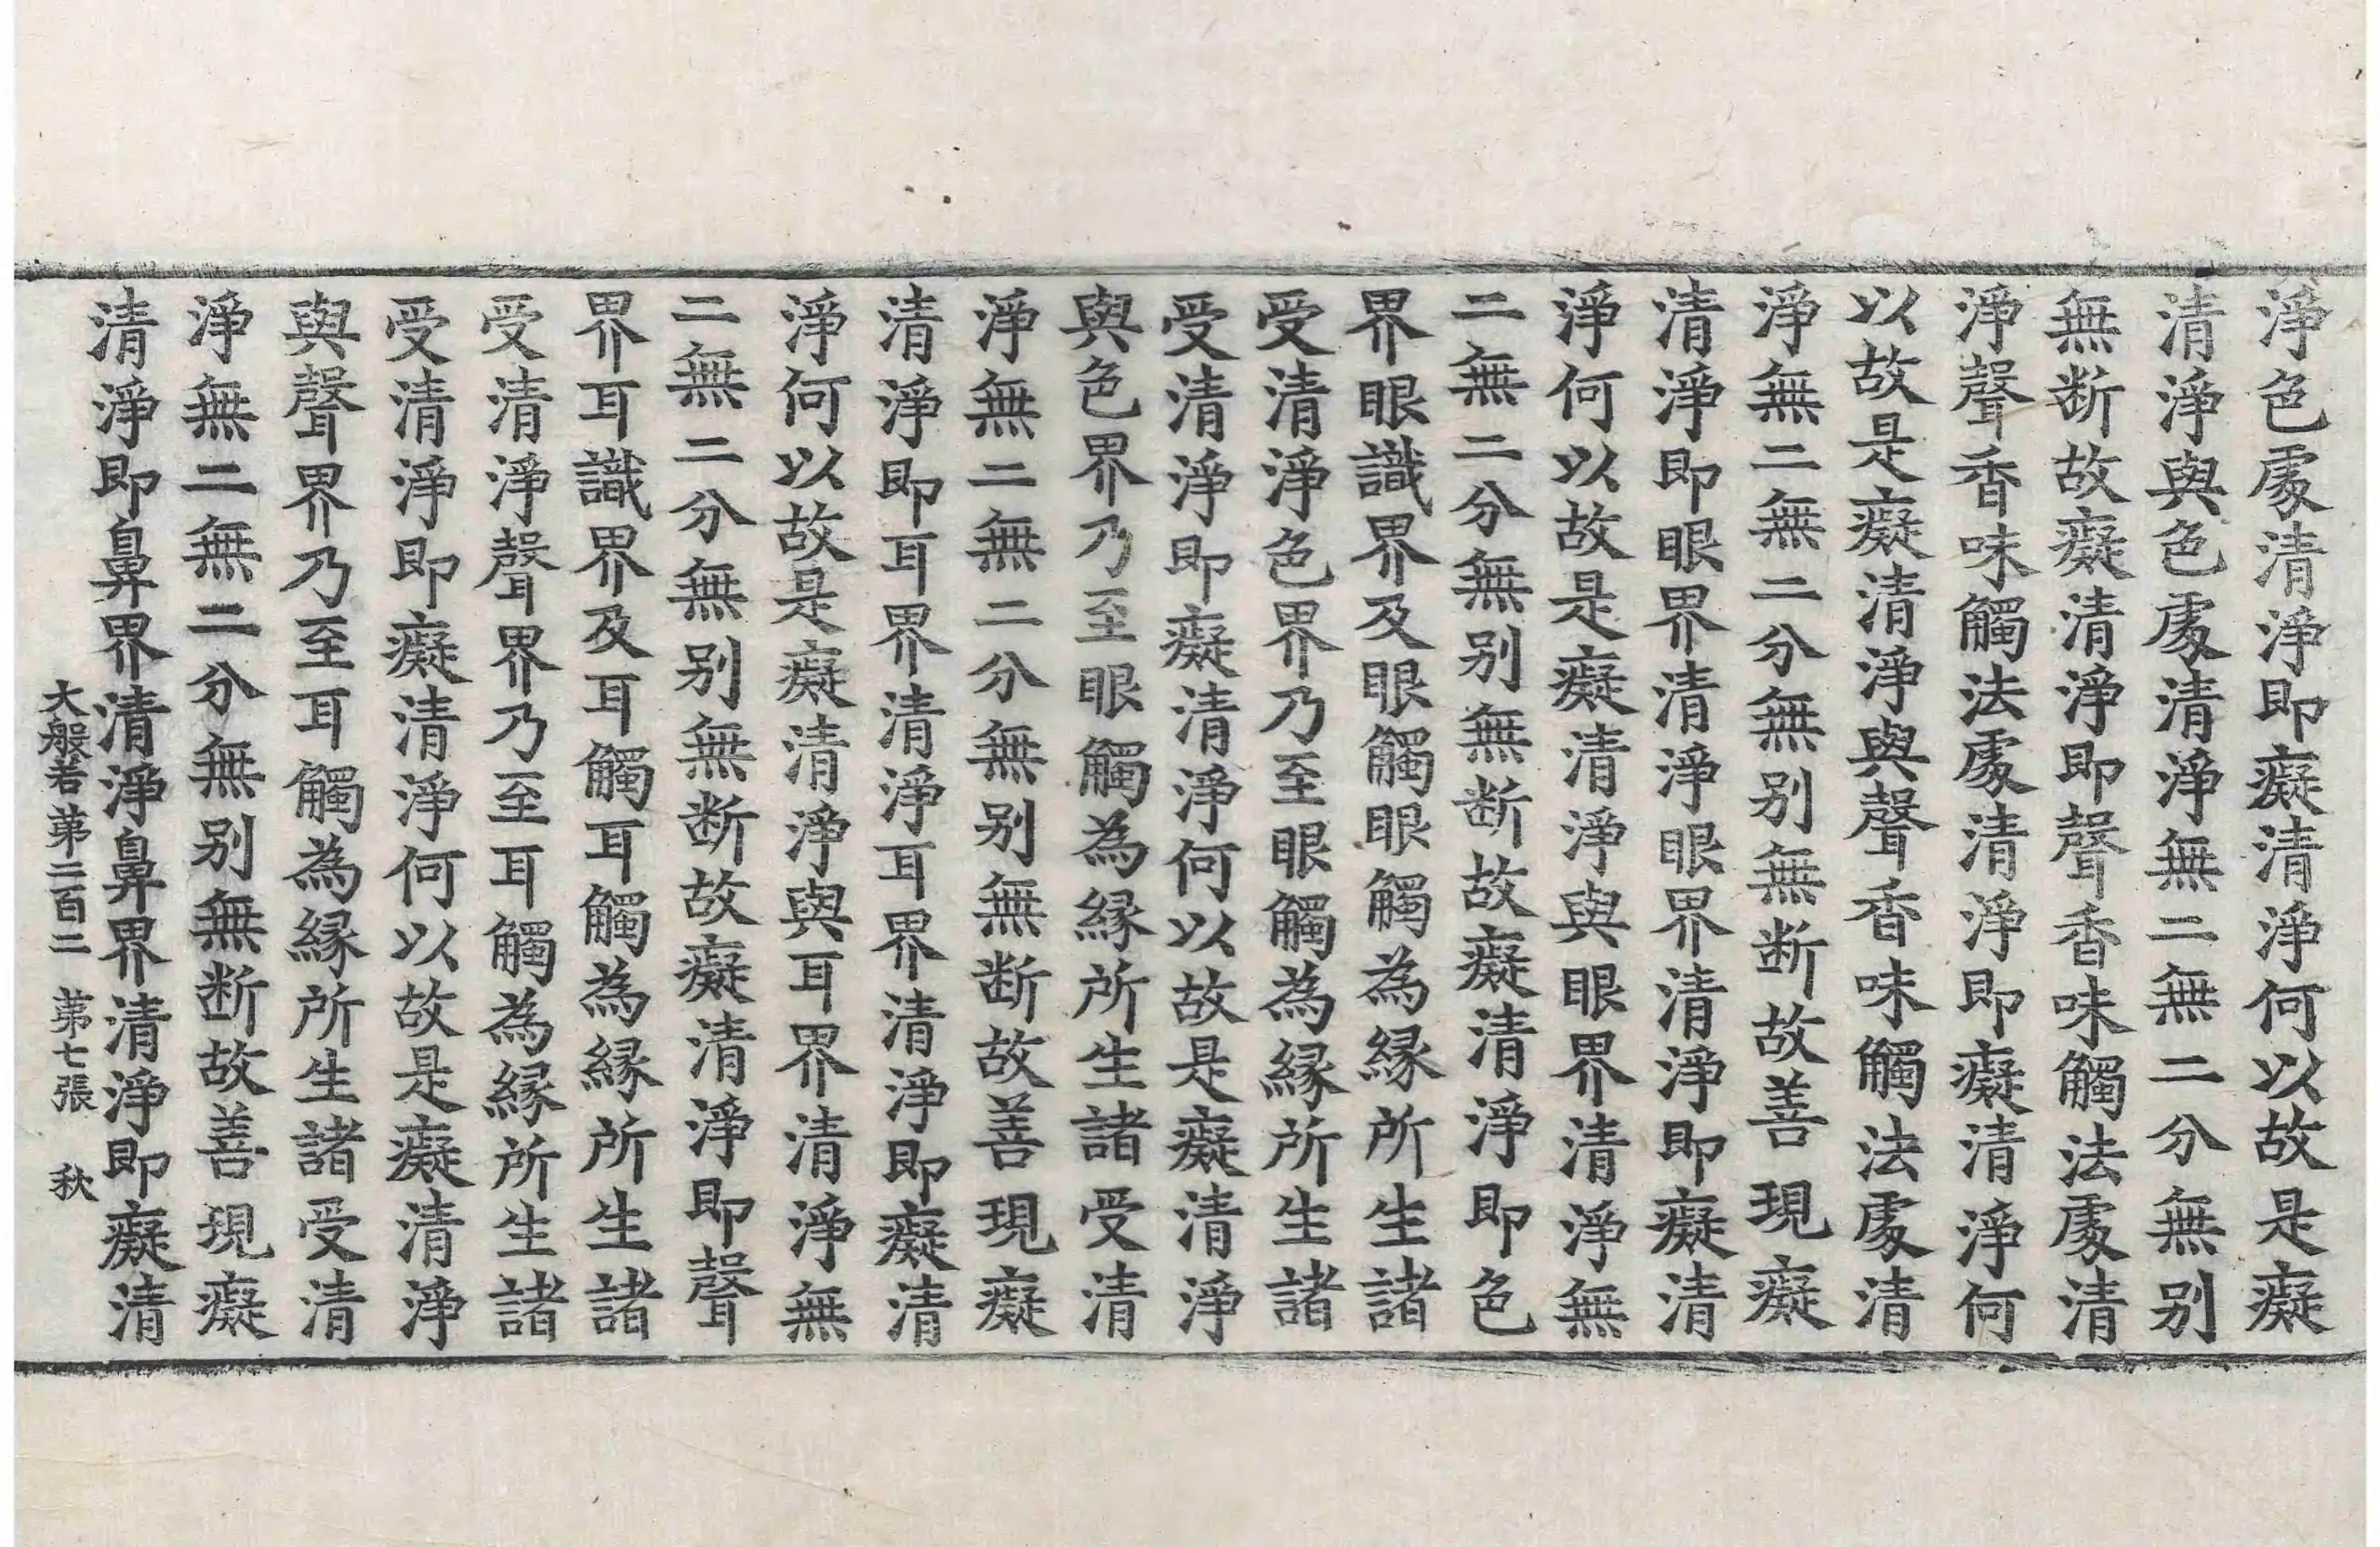 淨色處清淨即癡清淨何以故是癡
清淨與色處清淨無二無二分無别
無断故癡清淨即聲香味觸法處清
淨聲香味觸法處清淨即癡清淨何
以故是癡清淨與聲香味觸法處清
淨無二無二分無别無断故善現癡
清淨即眼界清淨眼界清淨即癡清
淨何以故是癡清淨與眼界清淨無
二無二分無别無断故癡清淨即色
界眼識界及眼觸眼觸為縁所生諸
受清淨色界乃至眼觸為縁所生諸
受清淨即癡清淨何以故是癡清淨
與色界乃至眼觸為縁所生諸受清
淨無二無二分無别無断故善現癡
清淨即耳界清淨耳界清淨即癡清
淨何以故是癡清淨與耳界清淨無
二無二分無别無断故癡清淨即聲
界耳識界及耳觸耳觸為縁所生諸
受清淨聲界乃至耳觸為縁所生諸
受清淨即癡清淨何以故是癡清淨
與聲界乃至耳觸為縁所生諸受清
淨無二無二分無别無断故善現癡
清淨即鼻界清淨鼻界清淨即癡清
大般若第二百二 第七張 秋